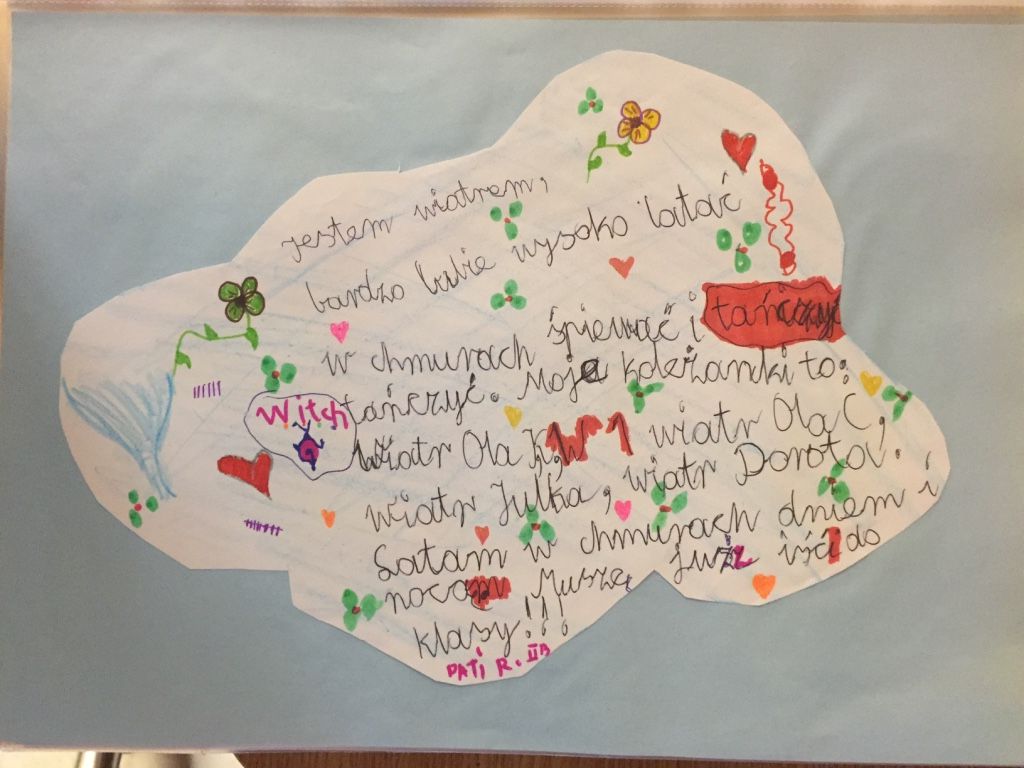 Jestem wiatrem,
bardzo lubie wysoko latać
w chmurach śpiewać i tańczyć
Witch
tańczyć. Moje koleżanki to:
Wiatr Ola K, W 1 wiatr Ola C,
wiatr Julka, wiatr Dorota.
Latam w chmurach dniem i
nocą Muszę już iść do
klasy!!!
PATI R. IIB